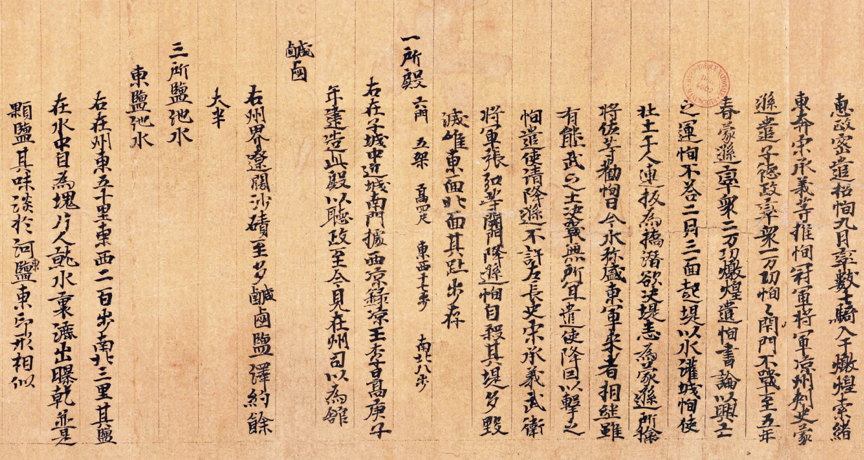 惠政密遣招恂九月率數十騎入于燉煌索緒
東奔宋承義等推恂冠軍將軍涼州刺史蒙
遜遣子德政率衆一万攻恂〻閇門不戰至五年
春蒙遜率衆二万攻燉煌遣恂書諭以興亡
之運恂不荅二月三面起堤以水灌城恂使
壮士千人連板為橋潜欲决堤悉為蒙遜所擒
將佐等勸恂曰今水称盛東軍來者相继雖
有熊武之士决戰無所宜遣使降因以擊之
恂遣使請降遜不許左長史宋承義武衛
將軍張弘等開門降遜恂自殺其堤多毁
滅唯東面北面其趾步存
一所殿 六門 五架 高四尺 東西十七步 南北八步
右在子城中近城南門據西涼録涼王李暠庚子
年建造此殿以聽政至今見在州司以為舘
鹹鹵
右州界遼闊沙磧至多鹹鹵鹽澤約餘
大半
三所鹽池水
東鹽池水
右在州東五十里東西二百步南北三里其鹽
在水中自為塊片人就水裏漉出曝乾並是
顆鹽其味淡於河東鹽印形相似